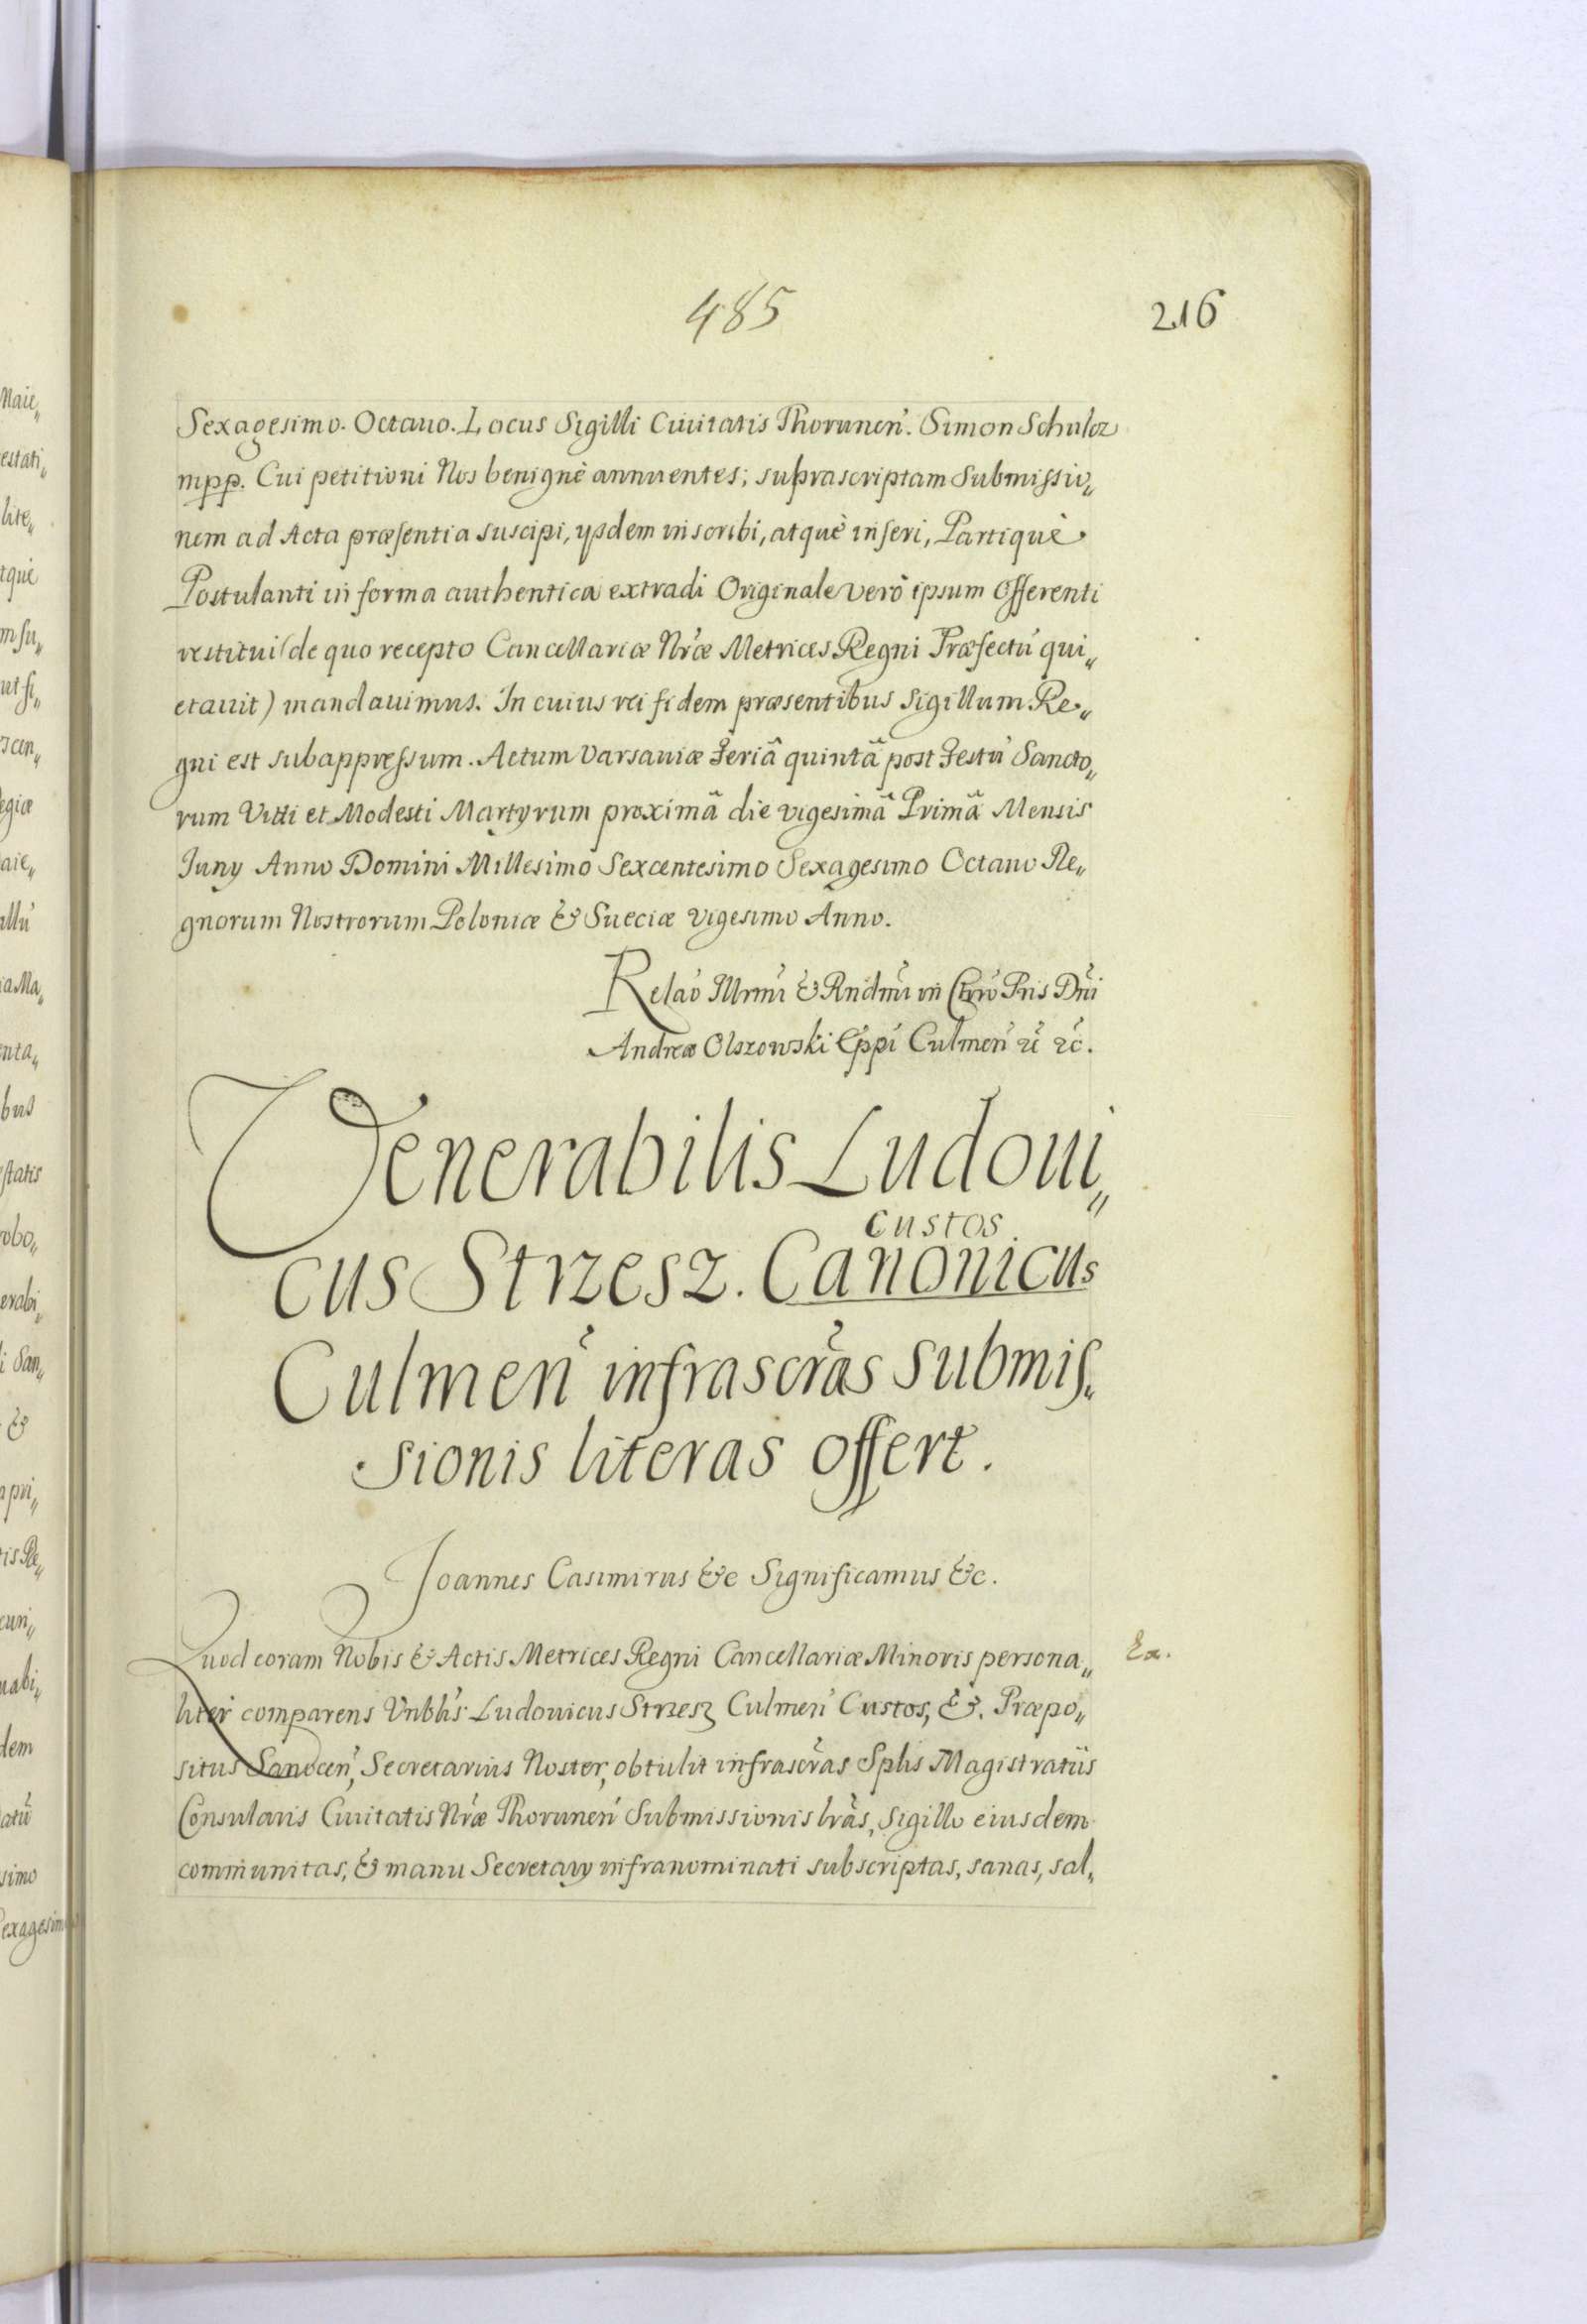 485
216
Sexagesimo. Octauo. Locus Sigilli Ciuitatis Thorunen̄. Simon Schulcz
mpp. Cui petitioni Nos benignè annuentes; suprascriptam Submissio„
nem ad Acta præsentia suscipi, ysdem inscribi, atquè inseri, Partiquè
Postulanti in forma authentica extradi Originale verò ipsum Offerenti
restitui (de quo recepto Cancellariæ Nr̃æ Metrices Regni Præfectũ qui„
etauit) mandauimus. In cuius rei fidem præsentibus Sigillum Re„
gni est subappressum. Actum Varsauiæ Feriâ quintâ post Festũ Sancto„
rum Viti et Modesti Martyrum proximâ die vigesimâ Primâ Mensis
Juny Anno Domini Millesimo Sexcentesimo Sexagesimo Octauo Re„
gnorum Nostrorum Poloniæ & Sueciæ vigesimo Anno.
Relaõ Illrmi & Rndmi in Chrõ Pris Dñi
Andreæ Olszowski Eppi Culmeñ &c &c.
Venerabilis Ludoui„
custos
cus Strzesz. Canonicus
Culmeñ infrascrãs submis„
sionis literas offert.
Joannes Casimirus &c Significamus &c.
Quod coram Nobis & Actis Metrices Regni Cancellariæ Minoris persona„
Ex.
liter comparens Vnblis Ludouicus Strzesz Culmeñ Custos, &. Præpo„
situs Sanoceñ, Secretarius Noster, obtulit infrascrãs Splis Magistratûs
Consularis Ciuitatis Nr̃æ Thoruneñ Submissionis lrãs, Sigillo eiusdem
com̃unitas, & manu Secretary infranominati subscriptas, sanas, sal„